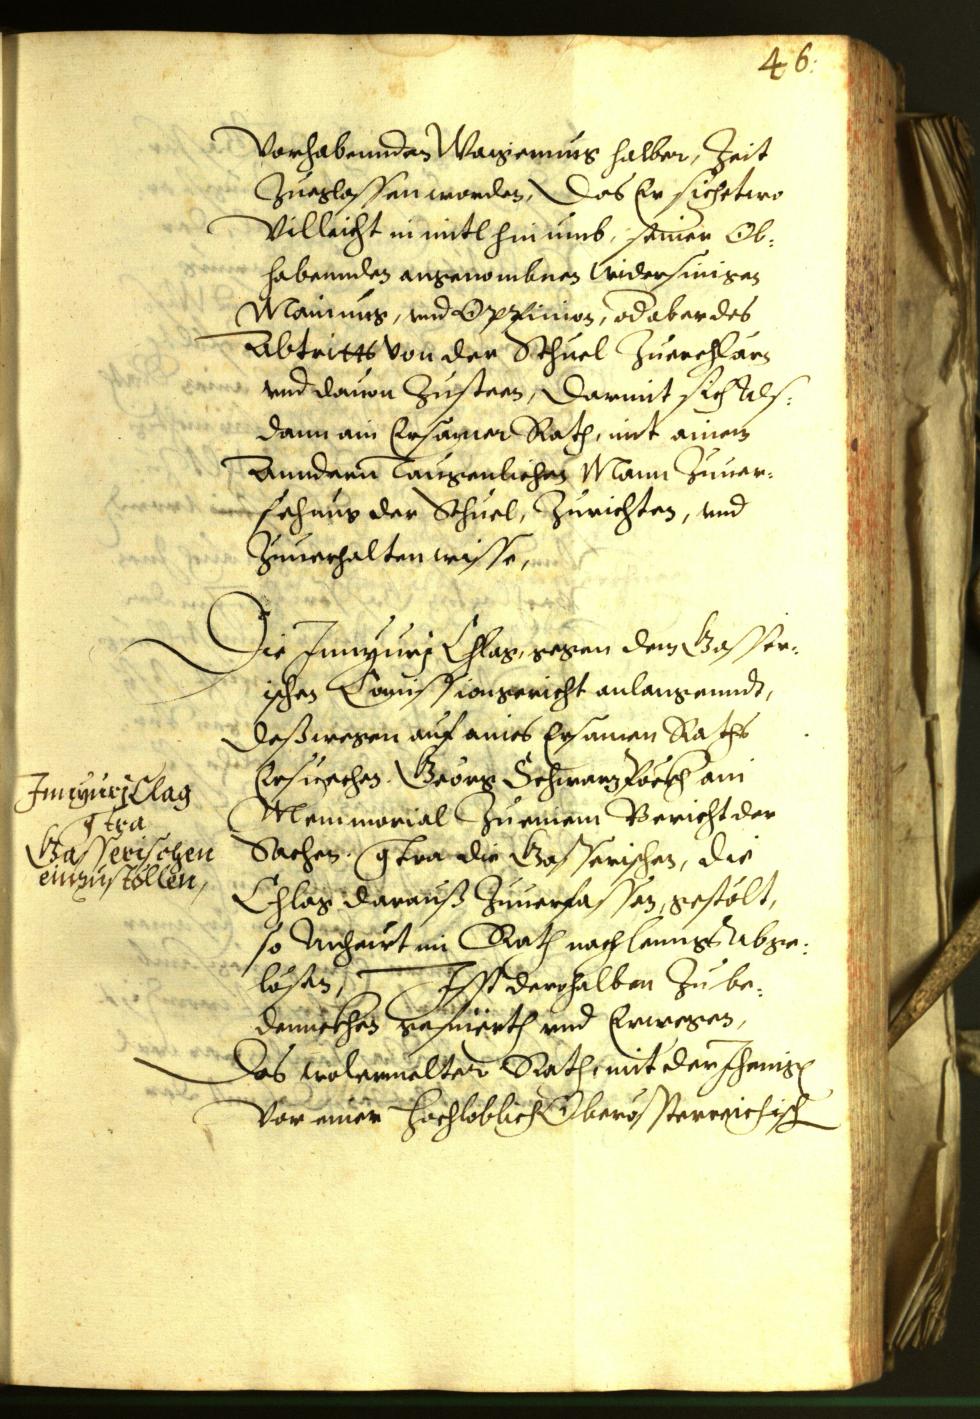 46.
vorhabennden Waigerung halber, Zeit
Zuegelassen worden, Das Er sich etwo
Villeicht in mitl hinumb, seiner Ob:
habennden angenombnen widersinigen
Mainung, vnd Oppinion, od aber des
Abtritts von der Schuel Zuerclärn
vnd dauon Zusteen, Darmit sich Als:
dann ain Ersamer Rath, mit ainem
Anndern Taugenlichen Mann Zuuer:
sehung der Schuel, Zurichten, vnd
Zuuerhalten wisse,
Die Innjurj Chlag, gegen dem Gasser:
ischen Comissiongericht anlangenndt,
deßwegen auf aines Ersamen Raths
Ersuechen. Geörg Schwarz ain
Memmorial Zu einem Bericht der
Sachen. gtra die Gasserischen, die
Chlag darauß Zuuerfassen, gestölt,
so Anheut im Rath nach lenngs Abge:
lösen, Ist derohalben Zu be:
dennckhen vnd Erwegen,
Das wolermelter Rath, mit der
vor einer hochloblich Oberössterreichisch
Innjurj Clag
gtra
Gasserischen
einzustöllen,